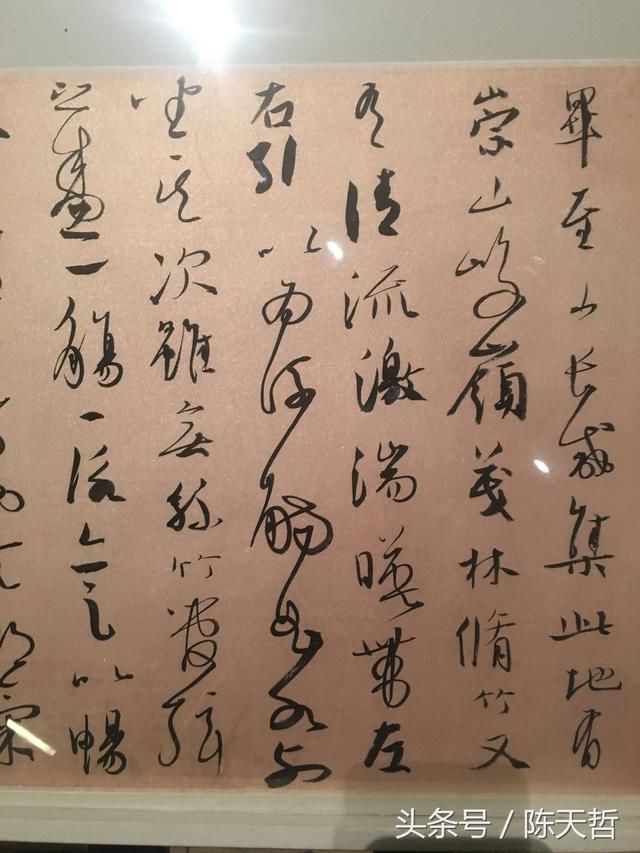 畢至少長咸集此地有
崇山峻嶺茂林脩竹又
有清流激湍暎帶左
右引以為流觴曲水列
坐其次雖無絲竹管弦
之盛一觴一詠亦足以暢
头条号 / 陈天哲